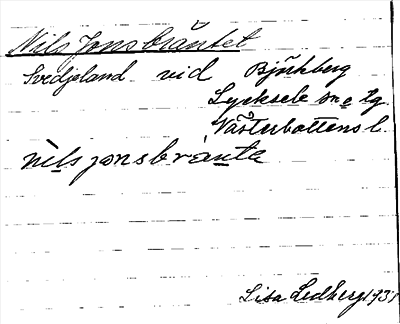 Nils Jonsbräntet
Svedjeland vid Björkberg
Lycksele sn o tg.
Västerbottens l.
nìls jònsbrànta
Lisa Lidberg 1931